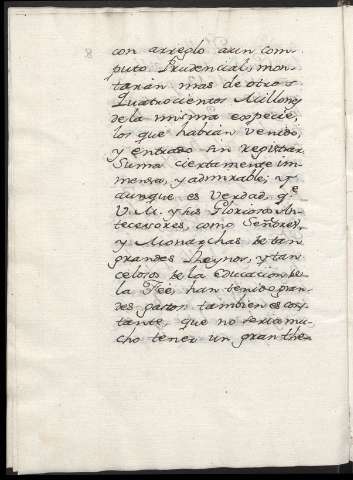 8
con arreglo a un com-
puto Prudencial, mon-
tarán mas de otros
Quatrocientos Millones
de la misma especie,
los que habrian venido,
y entrado sin registrar
Suma ciertamente im-
mensa, y admirable; y
aunque es Verdad, qᵉ
V. M. y sus Gloriosos An-
tecesores, como Señores,
y Monarchas de tan
grandes Reynos, y tan
celosos de la Educacion de
la Feè, han tenido gran-
des gastos tambien es cons-
tante, que no seria mu-
cho tener un gran the-